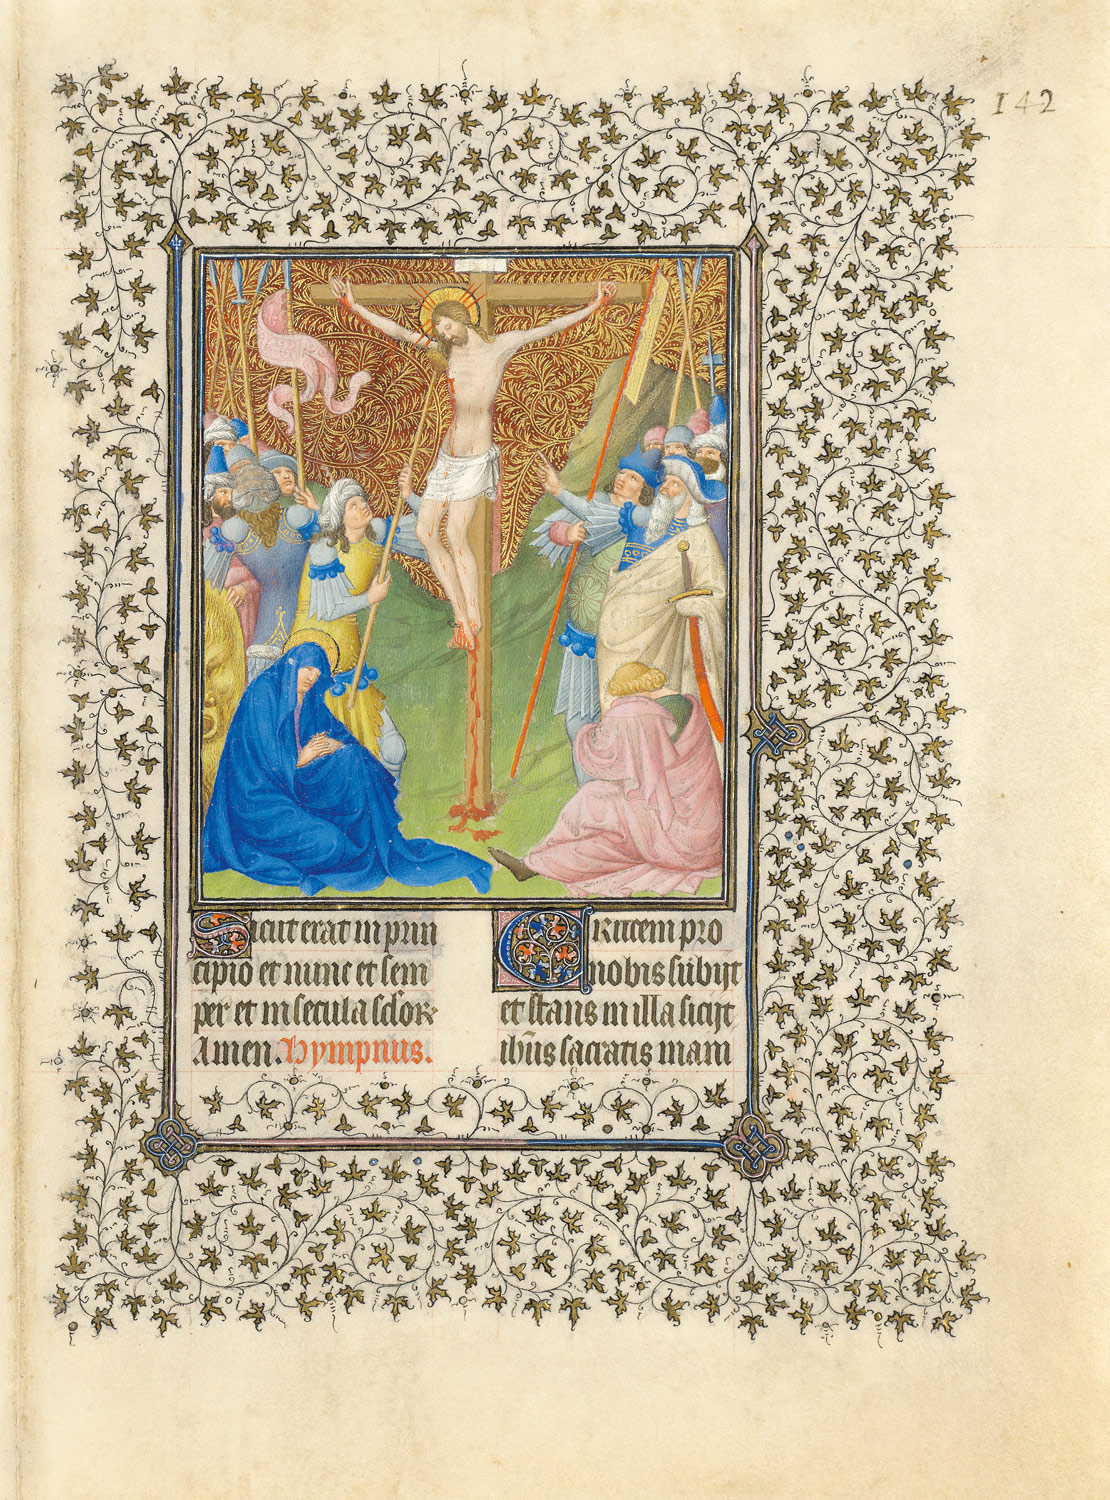 142
Sicut erat in prin
cipio et nunc et sem
per et in secula sc̄lor
Amen. Hympnus.
CRucem pro
nobis subijt
et stans in illa sicijt
ih̄us sacratis mani